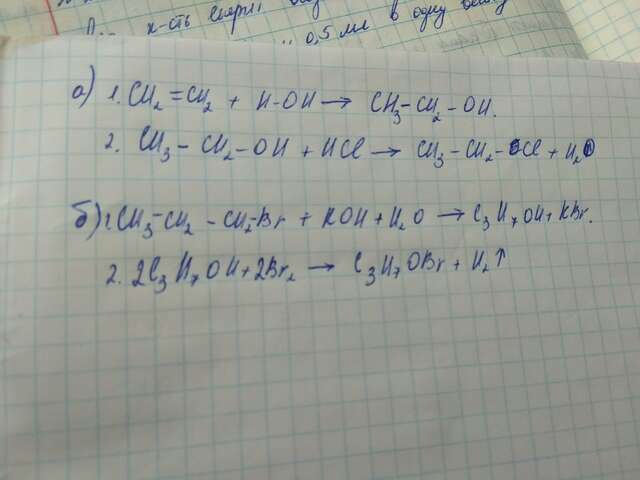 к-сть спирті
0,5 мл в одну
а) 1. CH₂=CH₂ + H-OH → CH₃-CH₂-OH.
2. CH₃-CH₂-OH + HCl → CH₃-CH₂-Cl + H₂O
б) 1. CH₃-CH₂-CH₂Br + KOH + H₂O → C₃H₇OH + KBr.
2. 2C₃H₇OH + 2Br₂ → C₃H₇OBr + H₂↑